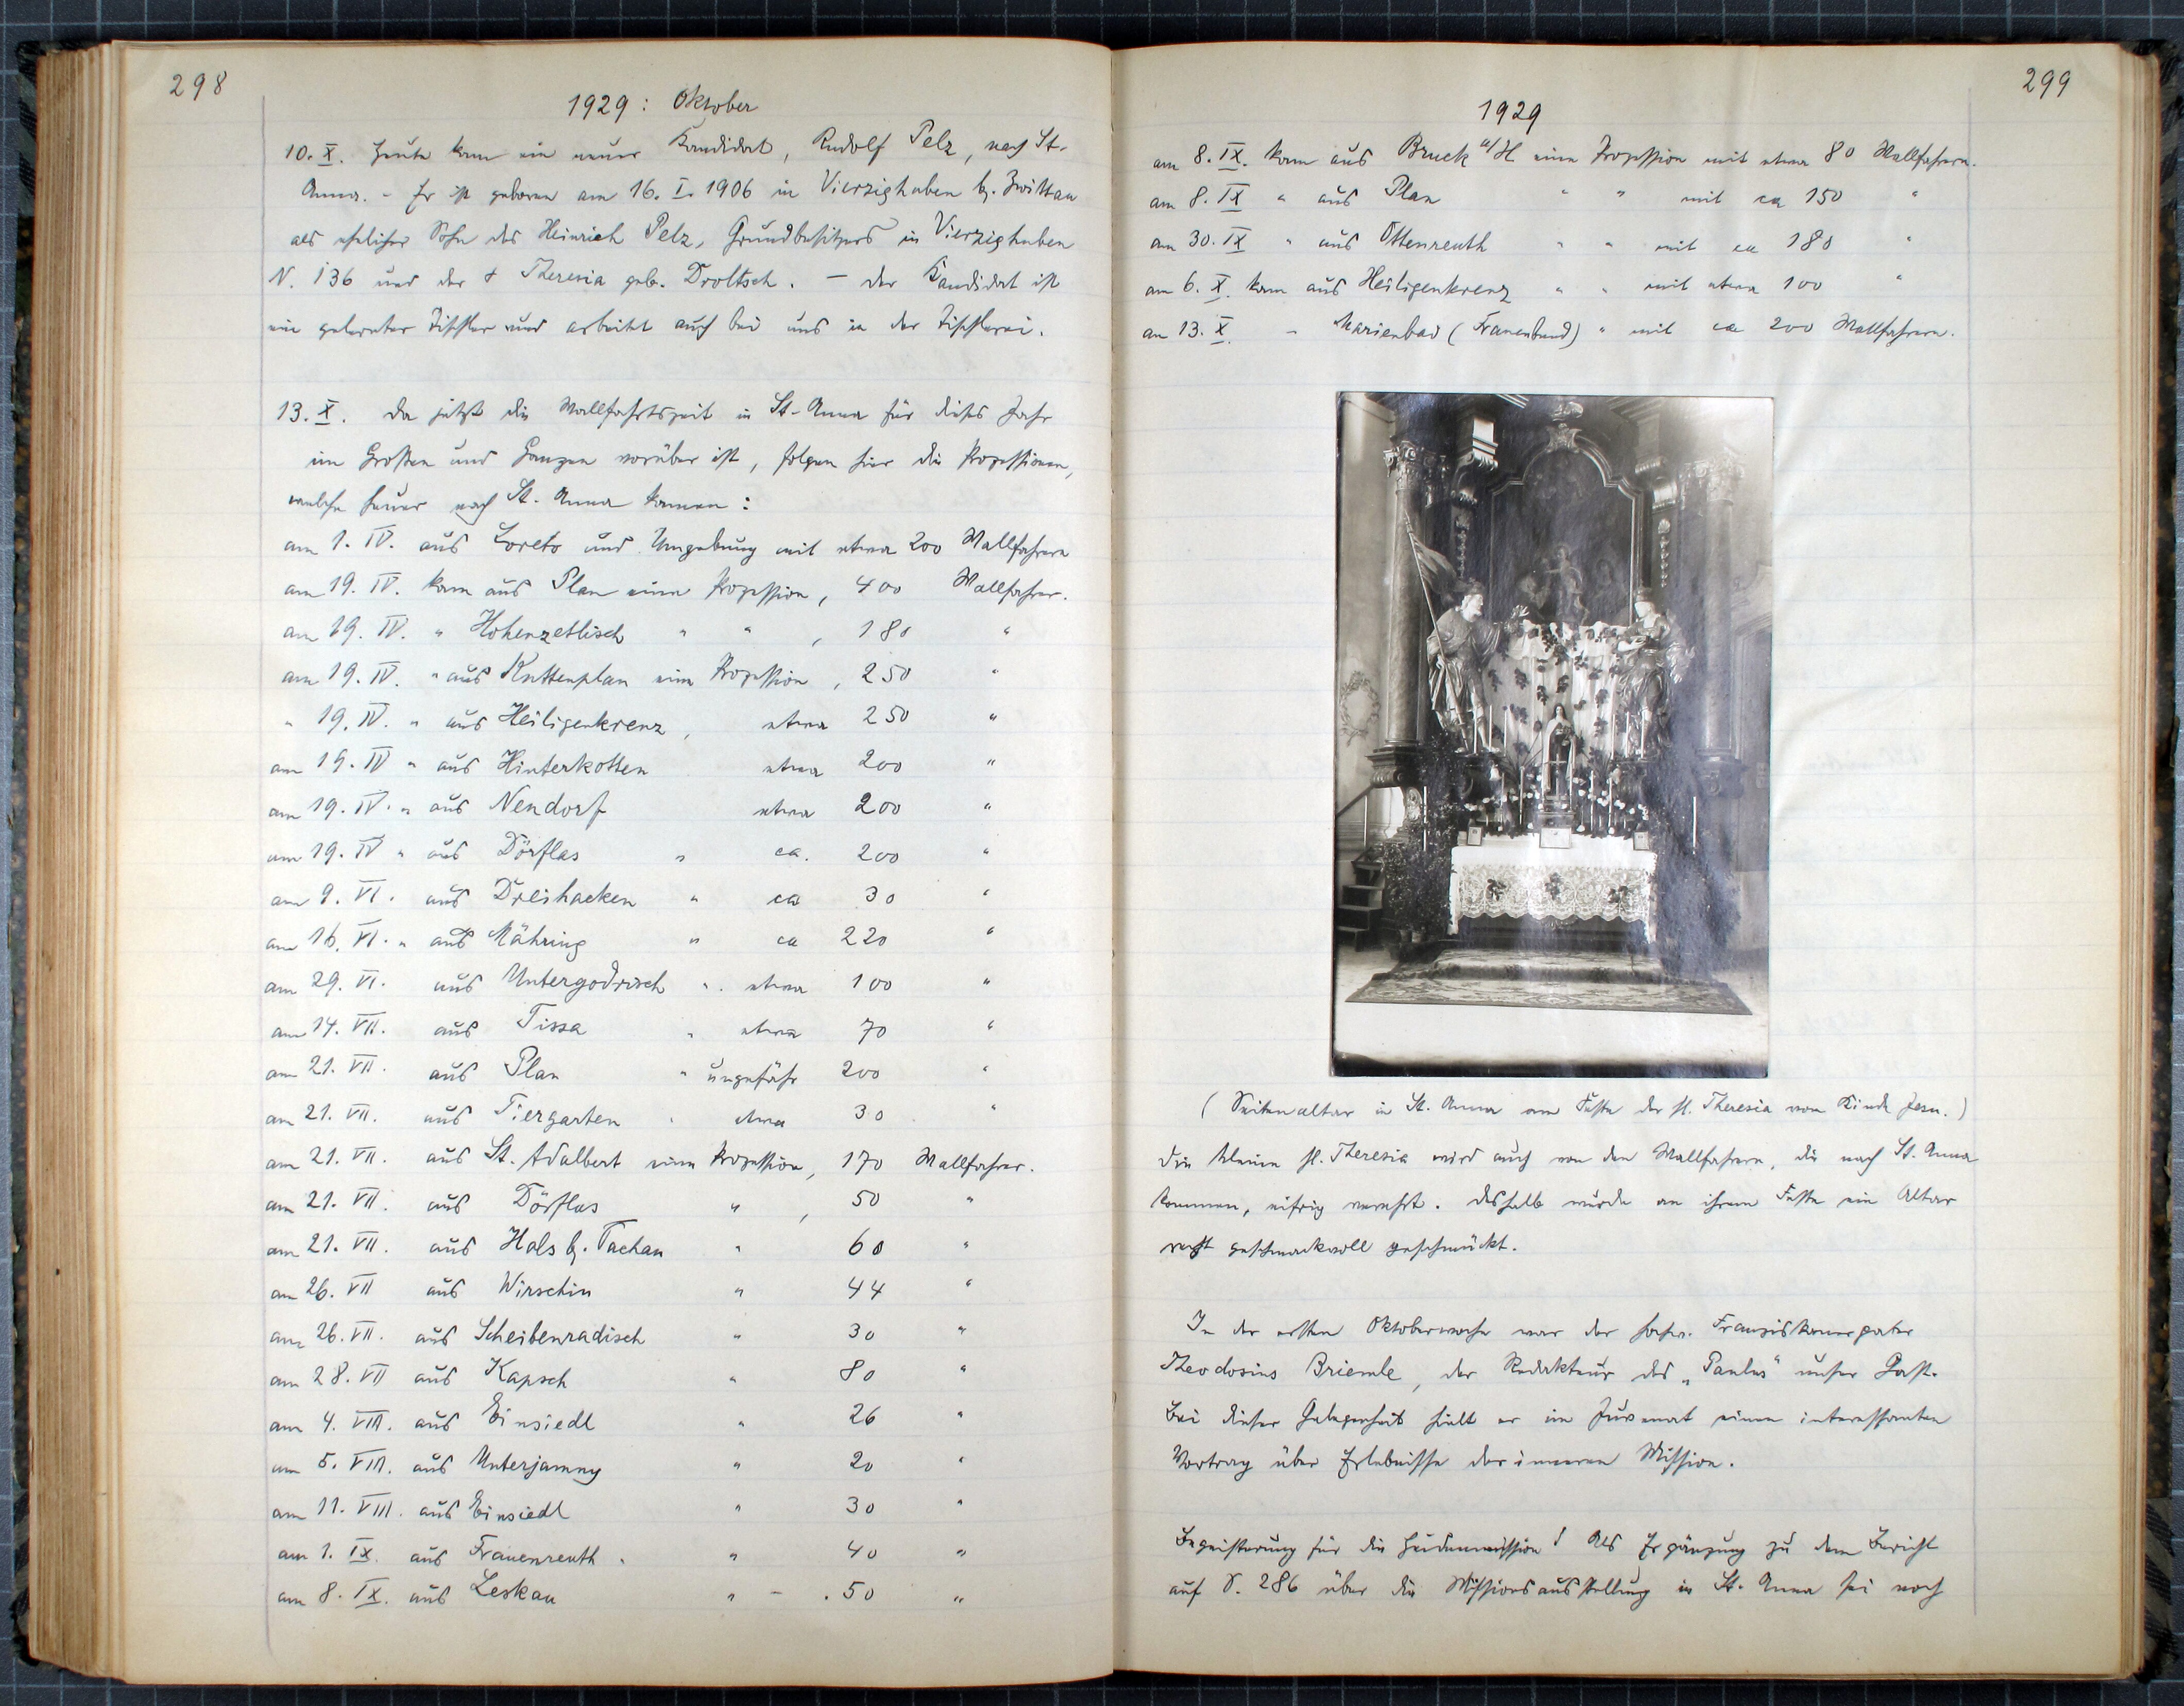 298
1929: Oktober
10. X. Heute kam ein neuer Kandidat, Rudolf Pelz, nach St.
Anna. - Er ist geboren am 16. I. 1906 in Vierzighuben b. Zwittau
als ehelicher Sohn des Heinrich Pelz, Grundbesitzers in Vierzighuben
N. 136 und der † Theresia geb. Droltsch. - Der Kandidat ist
ein gelernter Tischler und arbeitet auch bei uns in der Tischlerei.
13. X. Da jetzt die Wallfahrtszeit in St. Anna für dieses Jahr
im Großen und Ganzen vorüber ist, folgen hier die Prozessionen,
welche heuer nach St. Anna kamen:
am 1. IV. aus Loreto und Umgebung mit etwa 200 Wallfahrern
am 19. IV. kam aus Plan eine Prozession, 400 Wallfahrer.
am 19. IV. " Hohenzetlisch " " , 180 "
am 19. IV. " aus Kuttenplan eine Prozession, 250 "
" 19. IV. " aus Heiligenkreuz, etwa 250 "
am 19. IV " aus Hinterkotten etwa 200 "
am 19. IV. " aus Neudorf etwa 200 "
am 19. IV " aus Dörflas " ca. 200 "
am 9. VI. aus Dreihacken " ca 30 "
am 16. VI. " aus Mähring " ca 220 "
am 29. VI. aus Untergodrisch " . etwa 100 "
am 14. VII. aus Tissa " etwa 70 "
am 21. VII. aus Plan " ungefähr 200 "
am 21. VII. aus Tiergarten " etwa 30 "
am 21. VII. aus St. Adalbert eine Prozession, 170 Wallfahrer.
am 21. VII. aus Dörflas " , 50 "
am 21. VII. aus Hals b. Tachau " 60 "
am 26. VII aus Wirschin " 44 "
am 26. VII. aus Scheibenradisch " 30 "
am 28. VII aus Kapsch " 80 "
am 4. VIII. aus Einsiedl " 26 "
am 5. VIII. aus Unterjamny " 20 "
am 11. VIII. aus Einsiedl " 30 "
am 1. IX. aus Frauenreuth . " 40 "
am 8. IX. aus Leskau " - . 50 "
299
1929
am 8. IX. kam aus Bruck a/H eine Prozession mit etwa 80 Wallfahrern.
am 8. IX " aus Plan " " mit ca 150 "
am 30. IX " aus Ottenreuth " " mit ca 180 "
am 6. X. kam aus Heiligenkreuz " " mit etwa 100 "
am 13. X. - Marienbad (Frauenbund) " mit ca 200 Wallfahrern.
(Seitenaltar in St. Anna am Feste der hl. Theresia vom Kinde Jesu.)
Die kleine hl. Theresia wird auch von den Wallfahrern, die nach St. Anna
kommen, eifrig verehrt. Deshalb wurde an ihrem Feste ein Altar
recht geschmackvoll geschmückt.
In der ersten Oktoberwoche war der hochw. Franziskanerpater
Theodosius Briemle, der Redakteur des „Paulus" unser Gast.
Bei dieser Gelegenheit hielt er im Juvenat einen interessanten
Vortrag über Erlebnisse der inneren Mission.
Begeisterung für die Heidenmission! Als Ergänzung zu dem Bericht
auf S. 286 über die Missionsausstellung in St. Anna sei noch